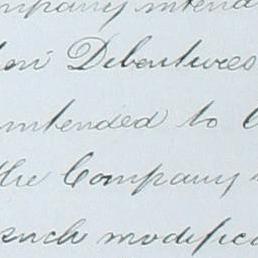 mpany inten
Debentures
intended to
the Company
such modific